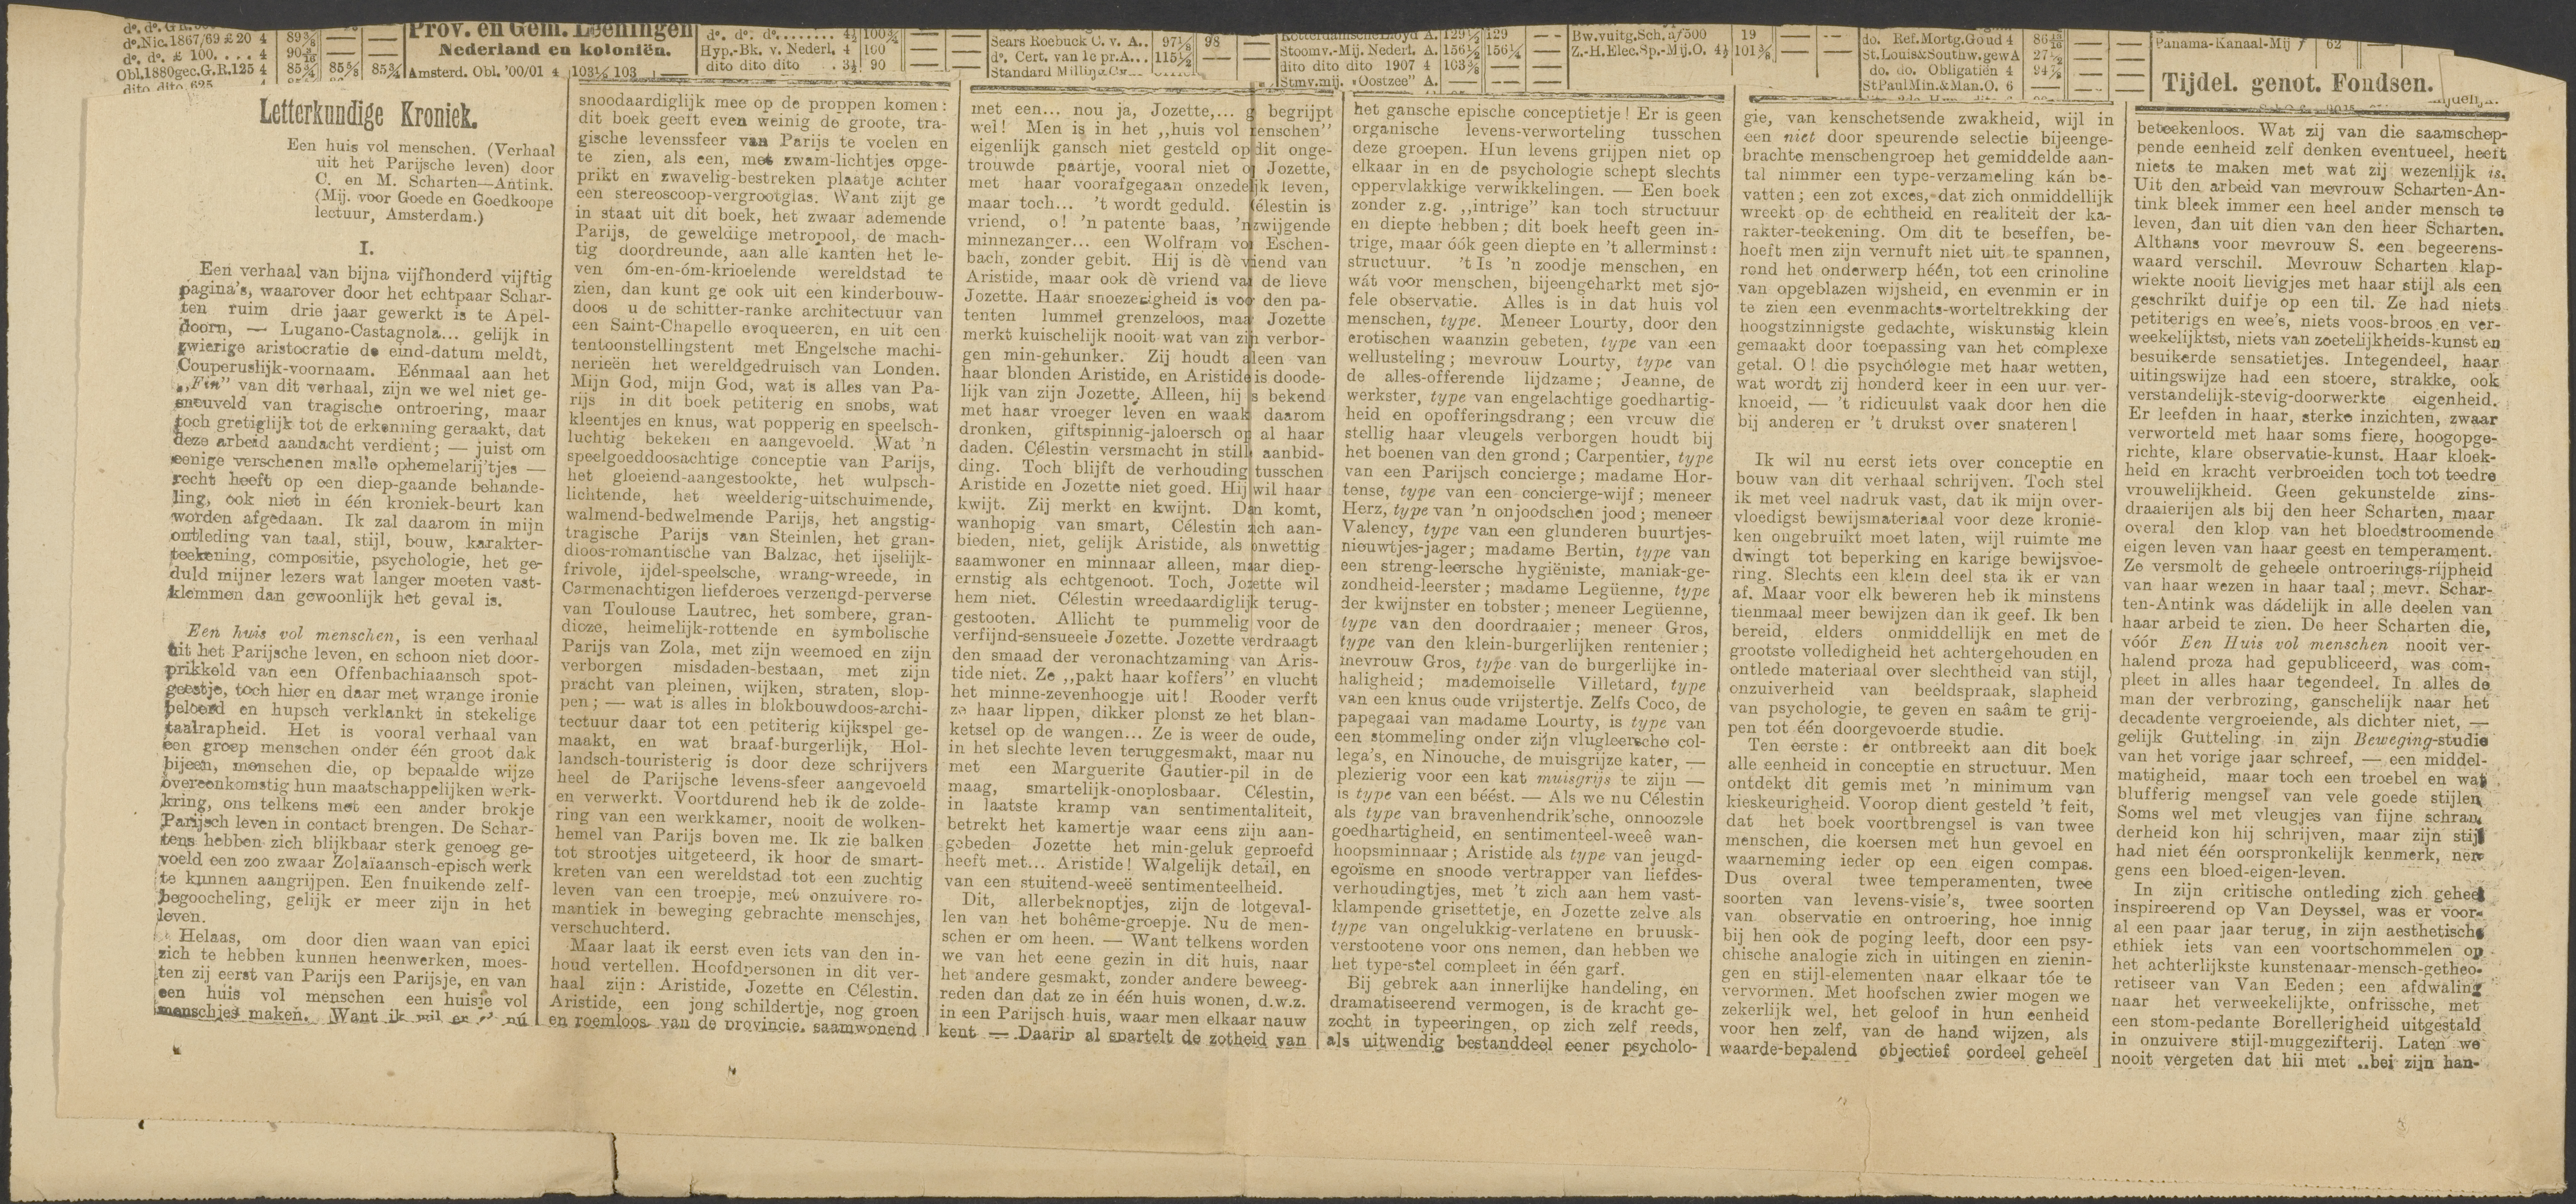 dº.Nic.1867/69 £ 20 4 89⅜ — —
dº. dº. £ 100. . . . 4 90 — —
Obl.1880gec.G.R.125 4 85¾ 85⅝ 85¾
dito dito 625
Prov. en Gem. Leeningen
Nederland en koloniën.
Amsterd. Obl. '00/01 4 103½ 103 —
dº. dº. dº........ 4½ 100¾ — —
Hyp.-Bk. v. Nederl. 4 100 — —
dito dito dito . 3½ 90 — —
Sears Roebuck C. v. A.. 97⅛ 98
dº. Cert. van 1e pr.A... 115½ —
Standard Milling
Rotterdamsche Lloyd A. 129½ 129
Stoomv.-Mij. Nederl. A. 156½ 156¼
dito dito dito 1907 4 103⅜ —
Stmv.mij. „Oostzee” A. — —
Bw.vuitg.Sch.àf500 19 —
Z.-H.Elec.Sp.-Mij.O. 4½ 101⅜ —
do. Ref.Mortg.Goud 4
St.Louis&Southw.gewA
do. do. Obligatiën 4
StPaulMin.&Man.O. 6
Panama-Kanaal-Mij 62
Tijdel. genot. Fondsen.
Letterkundige Kroniek.
Een huis vol menschen. (Verhaal
uit het Parijsche leven) door
C. en M. Scharten—Antink.
(Mij. voor Goede en Goedkoope
lectuur, Amsterdam.)
I.
Een verhaal van bijna vijfhonderd vijftig
pagina's, waarover door het echtpaar Schar-
ten ruim drie jaar gewerkt is te Apel-
doorn, — Lugano-Castagnola... gelijk in
zwierige aristocratie de eind-datum meldt,
Couperuslijk-voornaam. Eénmaal aan het
„Fin” van dit verhaal, zijn we wel niet ge-
sneuveld van tragische ontroering, maar
toch gretiglijk tot de erkenning geraakt, dat
deze arbeid aandacht verdient; — juist om
eenige verschenen malle ophemelarij'tjes —
recht heeft op een diep-gaande behande-
ling, ook niet in één kroniek-beurt kan
worden afgedaan. Ik zal daarom in mijn
ontleding van taal, stijl, bouw, karakter-
teekening, compositie, psychologie, het ge-
duld mijner lezers wat langer moeten vast-
klemmen dan gewoonlijk het geval is.
Een huis vol menschen, is een verhaal
uit het Parijsche leven, en schoon niet door-
prikkeld van een Offenbachiaansch spot-
geestje, toch hier en daar met wrange ironie
beloerd en hupsch verklankt in stekelige
taalrapheid. Het is vooral verhaal van
een groep menschen onder één groot dak
bijeen, menschen die, op bepaalde wijze
overeenkomstig hun maatschappelijken werk-
kring, ons telkens met een ander brokje
Parijsch leven in contact brengen. De Schar-
tens hebben zich blijkbaar sterk genoeg ge-
voeld een zoo zwaar Zolaïaansch-episch werk
te kunnen aangrijpen. Een fnuikende zelf-
begoocheling, gelijk er meer zijn in het
leven.
Helaas, om door dien waan van epici
zich te hebben kunnen heenwerken, moes-
ten zij eerst van Parijs een Parijsje, en van
een huis vol menschen een huisje vol
menschjes maken. Want ik wil er nú
snoodaardiglijk mee op de proppen komen:
dit boek geeft even weinig de groote, tra-
gische levenssfeer van Parijs te voelen en
te zien, als een, met zwam-lichtjes opge-
prikt en zwavelig-bestreken plaatje achter
een stereoscoop-vergrootglas. Want zijt ge
in staat uit dit boek, het zwaar ademende
Parijs, de geweldige metropool, de mach-
tig doordreunde, aan alle kanten het le-
ven óm-en-óm-krioelende wereldstad te
zien, dan kunt ge ook uit een kinderbouw-
doos u de schitter-ranke architectuur van
een Saint-Chapelle evoqueeren, en uit een
tentoonstellingstent met Engelsche machi-
nerieën het wereldgedruisch van Londen.
Mijn God, mijn God, wat is alles van Pa-
rijs in dit boek petiterig en snobs, wat
kleentjes en knus, wat popperig en speelsch-
luchtig bekeken en aangevoeld. Wat 'n
speelgoeddoosachtige conceptie van Parijs,
het gloeiend-aangestookte, het wulpsch-
lichtende, het weelderig-uitschuimende,
walmend-bedwelmende Parijs, het angstig-
tragische Parijs van Steinlen, het gran-
dioos-romantische van Balzac, het ijselijk-
frivole, ijdel-speelsche, wrang-wreede, in
Carmenachtigen liefderoes verzengd-perverse
van Toulouse Lautrec, het sombere, gran-
dioze, heimelijk-rottende en symbolische
Parijs van Zola, met zijn weemoed en zijn
verborgen misdaden-bestaan, met zijn
pracht van pleinen, wijken, straten, slop-
pen; — wat is alles in blokbouwdoos-archi-
tectuur daar tot een petiterig kijkspel ge-
maakt, en wat braaf-burgerlijk, Hol-
landsch-touristerig is door deze schrijvers
heel de Parijsche levens-sfeer aangevoeld
en verwerkt. Voortdurend heb ik de zolde-
ring van een werkkamer, nooit de wolken-
hemel van Parijs boven me. Ik zie balken
tot strootjes uitgeteerd, ik hoor de smart-
kreten van een wereldstad tot een zuchtig
leven van een troepje, met onzuivere ro-
mantiek in beweging gebrachte menschjes,
verschuchterd.
Maar laat ik eerst even iets van den in-
houd vertellen. Hoofdpersonen in dit ver-
haal zijn: Aristide, Jozette en Célestin.
Aristide, een jong schildertje, nog groen
en roemloos van de provincie, saamwonend
met een... nou ja, Jozette,... g begrijpt
wel! Men is in het „huis vol menschen”
eigenlijk gansch niet gesteld op dit onge-
trouwde paartje, vooral niet op Jozette,
met haar voorafgegaan onzedelijk leven,
maar toch... 't wordt geduld. Célestin is
vriend, o! 'n patente baas, 'n zwijgende
minnezanger... een Wolfram von Eschen-
bach, zonder gebit. Hij is dè vriend van
Aristide, maar ook dè vriend van de lieve
Jozette. Haar snoezerigheid is voor den pa-
tenten lummel grenzeloos, maar Jozette
merkt kuischelijk nooit wat van zijn verbor-
gen min-gehunker. Zij houdt alleen van
haar blonden Aristide, en Aristide is doode-
lijk van zijn Jozette. Alleen, hij is bekend
met haar vroeger leven en waakt daarom
dronken, giftspinnig-jaloersch op al haar
daden. Célestin versmacht in stille aanbid-
ding. Toch blijft de verhouding tusschen
Aristide en Jozette niet goed. Hij wil haar
kwijt. Zij merkt en kwijnt. Dan komt,
wanhopig van smart, Célestin zich aan-
bieden, niet, gelijk Aristide, als onwettig
saamwoner en minnaar alleen, maar diep-
ernstig als echtgenoot. Toch, Jozette wil
hem niet. Célestin wreedaardiglijk terug-
gestooten. Allicht te pummelig voor de
verfijnd-sensueele Jozette. Jozette verdraagt
den smaad der veronachtzaming van Aris-
tide niet. Ze „pakt haar koffers” en vlucht
het minne-zevenhoogje uit! Rooder verft
ze haar lippen, dikker plonst ze het blan-
ketsel op de wangen... Ze is weer de oude,
in het slechte leven teruggesmakt, maar nu
met een Marguerite Gautier-pil in de
maag, smartelijk-onoplosbaar. Célestin,
in laatste kramp van sentimentaliteit,
betrekt het kamertje waar eens zijn aan-
gebeden Jozette het min-geluk geproefd
heeft met... Aristide! Walgelijk detail, en
van een stuitend-weeë sentimenteelheid.
Dit, allerbeknoptjes, zijn de lotgeval-
len van het bohême-groepje. Nu de men-
schen er om heen. — Want telkens worden
we van het eene gezin in dit huis, naar
het andere gesmakt, zonder andere beweeg-
reden dan dat ze in één huis wonen, d.w.z.
in een Parijsch huis, waar men elkaar nauw
kent — Daarin al spartelt de zotheid van
het gansche epische conceptietje! Er is geen
organische levens-verworteling tusschen
deze groepen. Hun levens grijpen niet op
elkaar in en de psychologie schept slechts
oppervlakkige verwikkelingen. — Een boek
zonder z.g. „intrige” kan toch structuur
en diepte hebben; dit boek heeft geen in-
trige, maar óók geen diepte en 't allerminst:
structuur. 't Is 'n zoodje menschen, en
wát voor menschen, bijeengeharkt met sjo-
fele observatie. Alles is in dat huis vol
menschen, type. Meneer Lourty, door den
erotischen waanzin gebeten, type van een
wellusteling; mevrouw Lourty, type van
de alles-offerende lijdzame; Jeanne, de
werkster, type van engelachtige goedhartig-
heid en opofferingsdrang; een vrouw die
stellig haar vleugels verborgen houdt bij
het boenen van den grond; Carpentier, type
van een Parijsch concierge; madame Hor-
tense, type van een concierge-wijf; meneer
Herz, type van 'n onjoodschen jood; meneer
Valency, type van een glunderen buurtjes-
nieuwtjes-jager; madame Bertin, type van
een streng-leersche hygiëniste, maniak-ge-
zondheid-leerster; madame Legüenne, type
der kwijnster en tobster; meneer Legüenne,
type van den doordraaier; meneer Gros,
type van den klein-burgerlijken rentenier;
mevrouw Gros, type van de burgerlijke in-
haligheid; mademoiselle Villetard, type
van een knus oude vrijstertje. Zelfs Coco, de
papegaai van madame Lourty, is type van
een stommeling onder zijn vlugleersche col-
lega's, en Ninouche, de muisgrijze kater, —
plezierig voor een kat muisgrijs te zijn —
is type van een béést. — Als we nu Célestin
als type van bravenhendrik'sche, onnoozele
goedhartigheid, en sentimenteel-weeë wan-
hoopsminnaar; Aristide als type van jeugd-
egoïsme en snoode vertrapper van liefdes-
verhoudingtjes, met 't zich aan hem vast-
klampende grisettetje, en Jozette zelve als
type van ongelukkig-verlatene en bruusk-
verstootene voor ons nemen, dan hebben we
het type-stel compleet in één garf.
Bij gebrek aan innerlijke handeling, en
dramatiseerend vermogen, is de kracht ge-
zocht in typeeringen, op zich zelf reeds,
als uitwendig bestanddeel eener psycholo-
gie, van kenschetsende zwakheid, wijl in
een niet door speurende selectie bijeenge-
brachte menschengroep het gemiddelde aan-
tal nimmer een type-verzameling kán be-
vatten; een zot exces, dat zich onmiddellijk
wreekt op de echtheid en realiteit der ka-
rakter-teekening. Om dit te beseffen, be-
hoeft men zijn vernuft niet uit te spannen,
rond het onderwerp héén, tot een crinoline
van opgeblazen wijsheid, en evenmin er in
te zien een evenmachts-worteltrekking der
hoogstzinnigste gedachte, wiskunstig klein
gemaakt door toepassing van het complexe
getal. O! die psychólogie met haar wetten,
wat wordt zij honderd keer in een uur ver-
knoeid, — 't ridicuulst vaak door hen die
bij anderen er 't drukst over snateren!
Ik wil nu eerst iets over conceptie en
bouw van dit verhaal schrijven. Toch stel
ik met veel nadruk vast, dat ik mijn over-
vloedigst bewijsmateriaal voor deze kronie-
ken ongebruikt moet laten, wijl ruimte me
dwingt tot beperking en karige bewijsvoe-
ring. Slechts een klein deel sta ik er van
af. Maar voor elk beweren heb ik minstens
tienmaal meer bewijzen dan ik geef. Ik ben
bereid, elders onmiddellijk en met de
grootste volledigheid het achtergehouden en
ontlede materiaal over slechtheid van stijl,
onzuiverheid van beeldspraak, slapheid
van psychologie, te geven en saâm te grij-
pen tot één doorgevoerde studie.
Ten eerste: er ontbreekt aan dit boek
alle eenheid in conceptie en structuur. Men
ontdekt dit gemis met 'n minimum van
kieskeurigheid. Voorop dient gesteld 't feit,
dat het boek voortbrengsel is van twee
menschen, die koersen met hun gevoel en
waarneming ieder op een eigen compas.
Dus overal twee temperamenten, twee
soorten van levens-visie's, twee soorten
van observatie en ontroering, hoe innig
bij hen ook de poging leeft, door een psy-
chische analogie zich in uitingen en zienin-
gen en stijl-elementen naar elkaar tóe te
vervormen. Met hoofschen zwier mogen we
zekerlijk wel, het geloof in hun eenheid
voor hen zelf, van de hand wijzen, als
waarde-bepalend objectief oordeel geheel
beteekenloos. Wat zij van die saamschep-
pende eenheid zelf denken eventueel, heeft
niets te maken met wat zij wezenlijk is.
Uit den arbeid van mevrouw Scharten-An-
tink bleek immer een heel ander mensch te
leven, dan uit dien van den heer Scharten.
Althans voor mevrouw S. een begeerens-
waard verschil. Mevrouw Scharten klap-
wiekte nooit lievigjes met haar stijl als een
geschrikt duifje op een til. Ze had niets
petiterigs en wee's, niets voos-broos en ver-
weekelijktst, niets van zoetelijkheids-kunst en
besuikerde sensatietjes. Integendeel, haar
uitingswijze had een stoere, strakke, ook
verstandelijk-stevig-doorwerkte eigenheid.
Er leefden in haar, sterke inzichten, zwaar
verworteld met haar soms fiere, hoogopge-
richte, klare observatie-kunst. Haar kloek-
heid en kracht verbroeiden toch tot teedre
vrouwelijkheid. Geen gekunstelde zins-
draaierijen als bij den heer Scharten, maar
overal den klop van het bloedstroomende
eigen leven van haar geest en temperament.
Ze versmolt de geheele ontroerings-rijpheid
van haar wezen in haar taal; mevr. Schar-
ten-Antink was dádelijk in alle deelen van
haar arbeid te zien. De heer Scharten die,
vóór Een Huis vol menschen nooit ver-
halend proza had gepubliceerd, was com-
pleet in alles haar tegendeel. In alles de
man der verbrozing, ganschelijk naar het
decadente vergroeiende, als dichter niet, —
gelijk Gutteling in zijn Beweging-studie
van het vorige jaar schreef, — een middel-
matigheid, maar toch een troebel en wat
blufferig mengsel van vele goede stijlen
Soms wel met vleugjes van fijne schran
derheid kon hij schrijven, maar zijn stijl
had niet één oorspronkelijk kenmerk, ner
gens een bloed-eigen-leven.
In zijn critische ontleding zich geheel
inspireerend op Van Deyssel, was er voor-
al een paar jaar terug, in zijn aesthetische
ethiek iets van een voortschommelen op
het achterlijkste kunstenaar-mensch-getheo-
retiseer van Van Eeden; een afdwaling
naar het verweekelijkte, onfrissche, met
een stom-pedante Borellerigheid uitgestald
in onzuivere stijl-muggezifterij. Laten we
nooit vergeten dat hij met „bei zijn han-